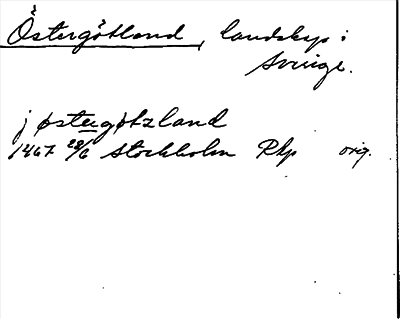 Östergötland, landskap i
Sverige.
j østergøtzland
1467 28/6 Stockholm Rkp orig.